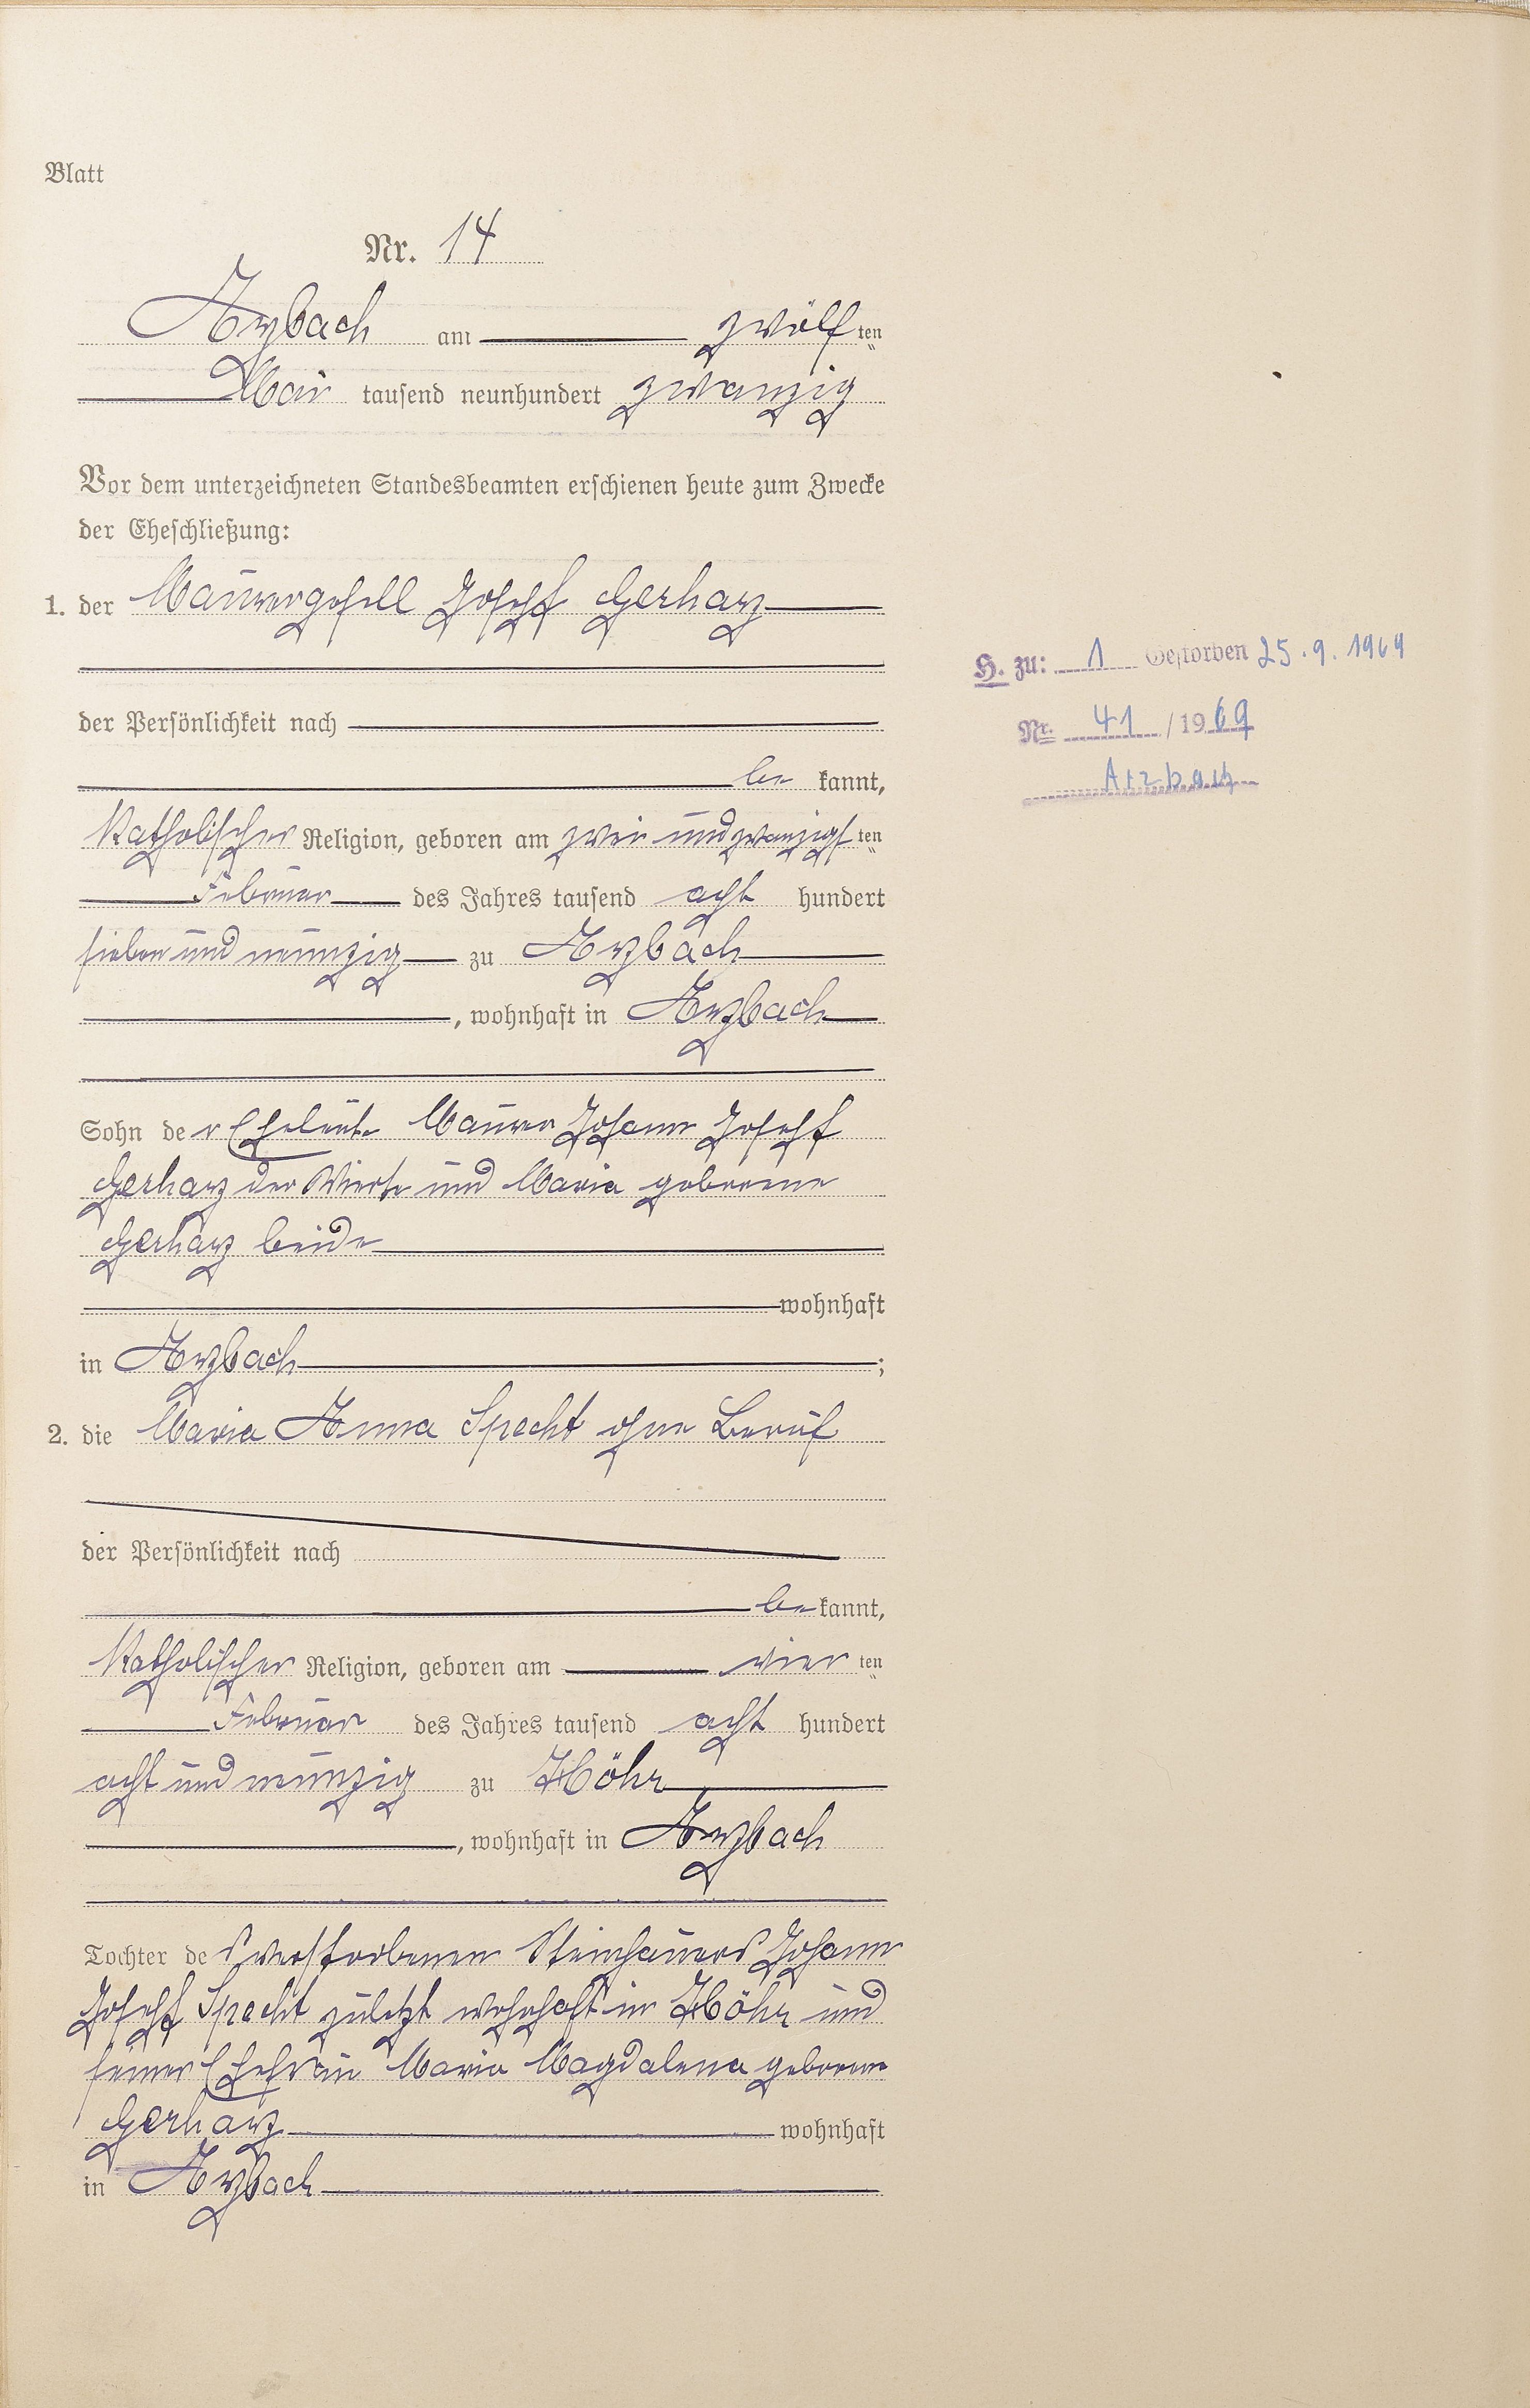 Blatt
Nr. 14
Arzbach am zwölften
Mai tausend neunhundert zwanzig
Vor dem unterzeichneten Standesbeamten erschienen heute zum Zwecke
der Eheschließung:
1. der Maurergesell Joseph Gerharz
der Persönlichkeit nach
be kannt,
Katholischer Religion, geboren am zwei und zwanzigsten
Februar des Jahres tausend acht hundert
sieben und neunzig zu Arzbach
, wohnhaft in Arzbach
Sohn der Eheleute Maurer Johann Joseph
Gerharz der Vierte und Maria geborene
Gerharz beide
wohnhaft
in Arzbach ;
2. die Maria Anna Specht ohne Beruf
der Persönlichkeit nach
be kannt,
Katholischer Religion, geboren am vierten
Februar des Jahres tausend acht hundert
acht und neunzig zu Höhr
, wohnhaft in Arzbach
Tochter des verstorbenen Steinhauers Johann
Joseph Specht zuletzt wohnhaft in Höhr und
seiner Ehefrau Maria Magdalena geborene
Gerharz wohnhaft
in Arzbach
H. zu: 1 Gestorben 25.9.1969
Nr. 41 / 1969
Arzbach